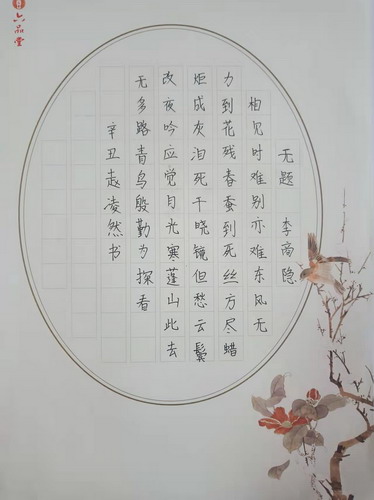 六品堂
无题 李商隐
相见时难别亦难东风无
力到花残春蚕到死丝方尽蜡
炬成灰泪死干晓镜但愁云鬓
改夜吟应觉月光寒蓬山此去
无多路青鸟殷勤为探看
辛丑赵凌然书